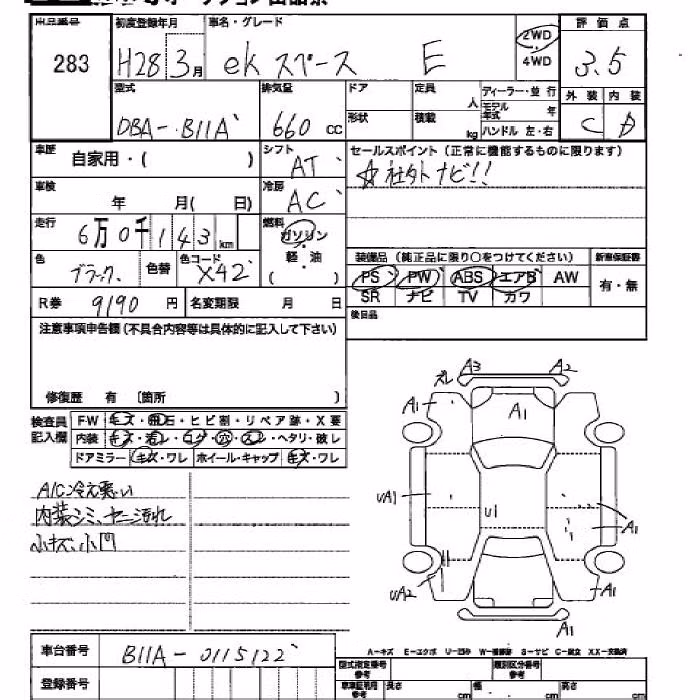 出品番号 初度登録年月 車名・グレード 2WD 評価点
283 H28 3月 ekスペース E 4WD 3.5
型式 排気量 ドア 定員 人 ディーラー・並行 外装 内装
DBA-B11A 660cc 形状 積載 kg モデル年式 年 C D
ハンドル 左・右
車歴 自家用・( ) シフト AT セールスポイント(正常に機能するものに限ります)
車検 年 月( 日) 冷房 AC ☆社外ナビ!!
走行 6万0千143km 燃料 ガソリン
軽・油
( )
色 ブラック 色替 色コード X42 装備品(純正品に限り○をつけてください) 新車保証書
PS PW ABS エアB AW 有・無
R券 9190円 名変期限 月 日 SR ナビ TV カワ
後日品
注意事項申告欄(不具合内容等は具体的に記入して下さい)
修復歴 有 〔箇所 〕
検査員記入欄 FW キズ・飛石・ヒビ割・リペア跡・X要
内装 キズ・汚レ・コゲ・穴・スレ・ヘタリ・破レ
ドアミラー キズ・ワレ ホイール・キャップ キズ・ワレ
A/C冷え悪い
内装シミ、ヤニ汚れ
小キズ、小凹
ズレ A3 A2
A1 A1
UA1 U1 A1
UA2 A1
A1
A-キズ E-エクボ U-凹み W-補修跡 S-サビ C-腐食 XX-交換済
車台番号 B11A-0115122
登録番号
型式指定番号 参考 類別区分番号 参考
長さ cm 幅 cm 高さ cm